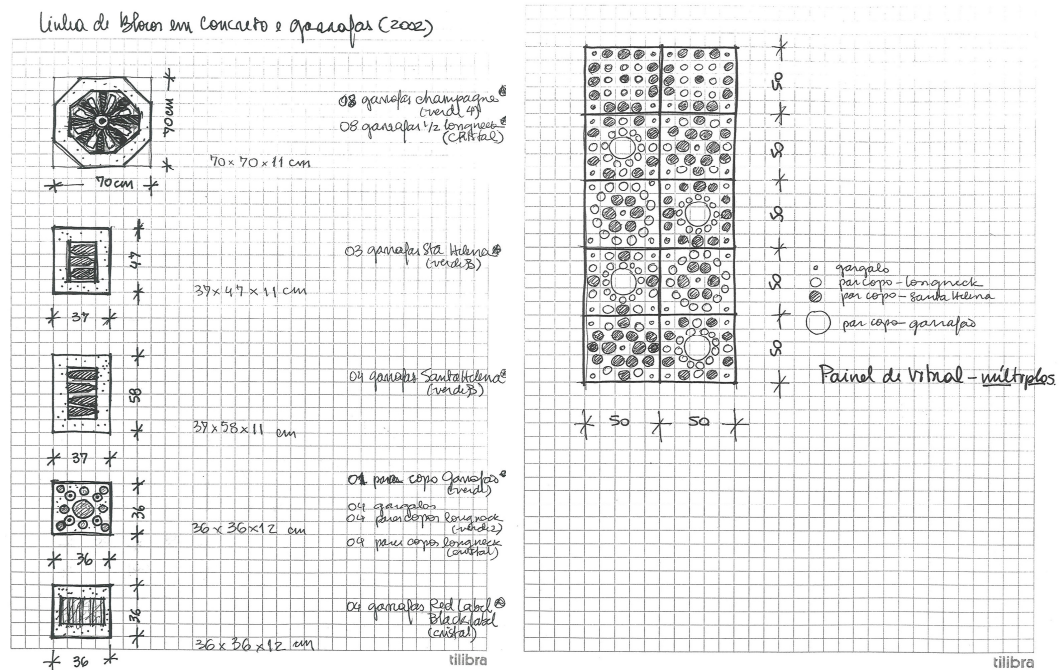 Linha de Blocos em Concreto e garrafas (2002)
08 garrafas champagne
(verde 4)
08 garrafas 1/2 longneck
(cristal)
70cm
70 x 70 x 11 cm
70cm
03 garrafas Sta Helena
(verde B)
47
37 x 47 x 11 cm
37
04 garrafas Santa Helena
(verde B)
58
37 x 58 x 11 cm
37
01 par copo Garrafão
(verde)
04 gargalos
04 pares copos longneck
(verde 2)
04 pares copos longneck
(cristal)
36
36 x 36 x 12 cm
36
04 garrafas Red Label
Black label
(cristal)
36
36 x 36 x 12 cm
36
tilibra
50
50
50
50
50
gargalo
par copo - longneck
par copo - Santa Helena
par copo - garrafão
Painel de Vitral - múltiplos
50 50
tilibra